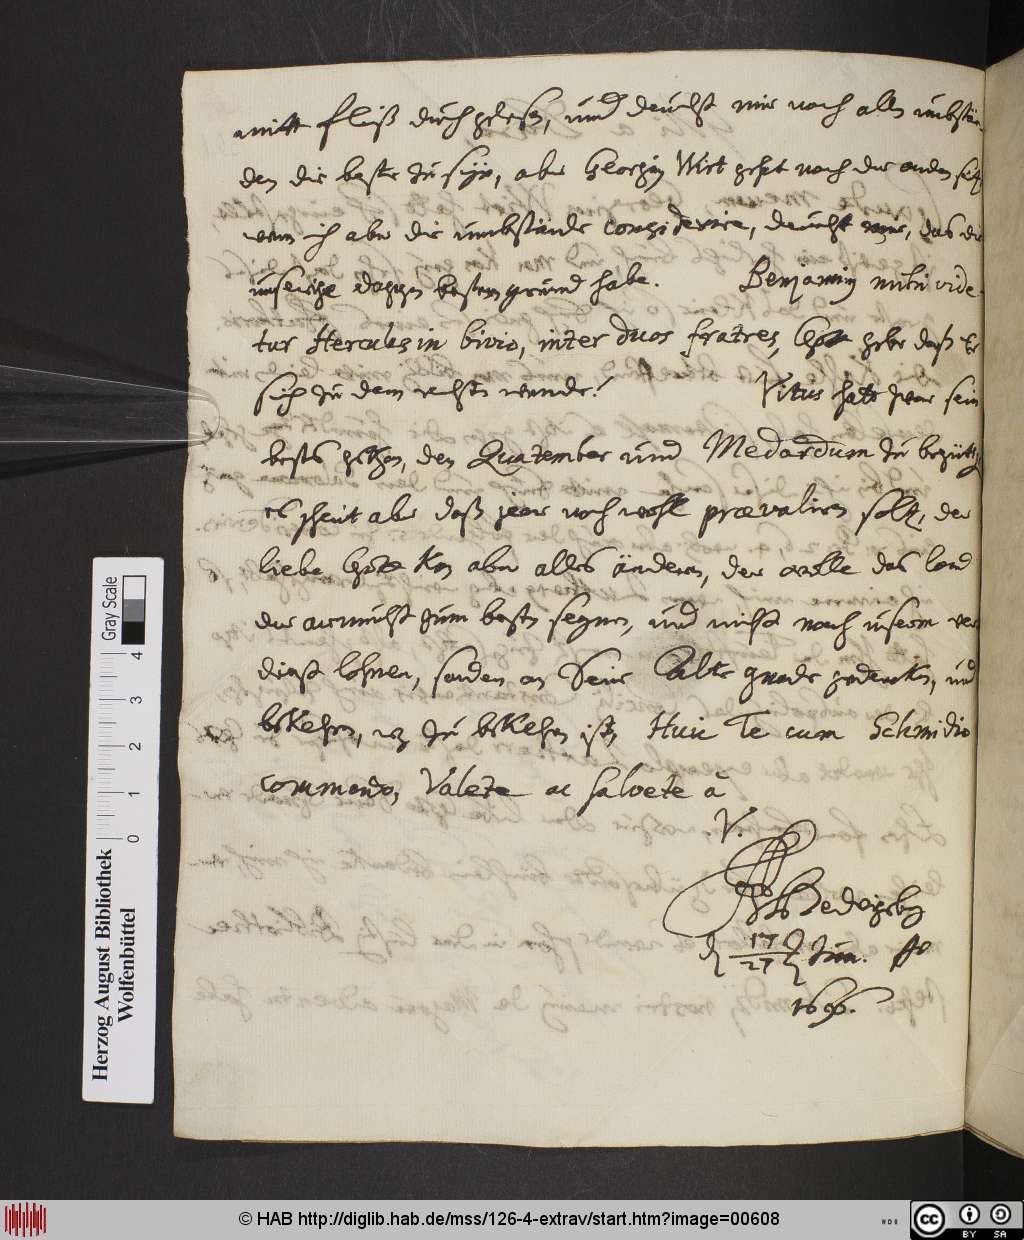 mitt fleiß durchgelesen, und deucht mir nach allen umbstän-
den die beste zu seyn, aber Georgen Wirt geht nach der andern seit,
wenn ich aber die umbstände considerire, deucht mir, das die
unserige dargegen besten grund habe. Benjamin mihi vide-
tur Hercules in bivio, inter duos fratres, Gott gebe daß Er
sich zu dem rechten wende! Vitus hatt zwar sein
bestes gethan, den Quatember und Medardum zu
es scheint aber daß jener noch wohl prævaliren solte, der
liebe Gott kan aber alles änderen, der wolle das land
der armuht zum besten segnen, und nicht nach unserm ver-
dienst lohnen, sondern an Seine Alte gnade gedencken, und
bekehren, wz zu bekehren ist, Huic Te cum Schmidio
commendo, Valete ac salvete à
V.
17
27 Jun.
1696.
Gray Scale
0 1 2 3 4
Herzog August Bibliothek
Wolfenbüttel
© HAB http://diglib.hab.de/mss/126-4-extrav/start.htm?image=00608
cc BY SA